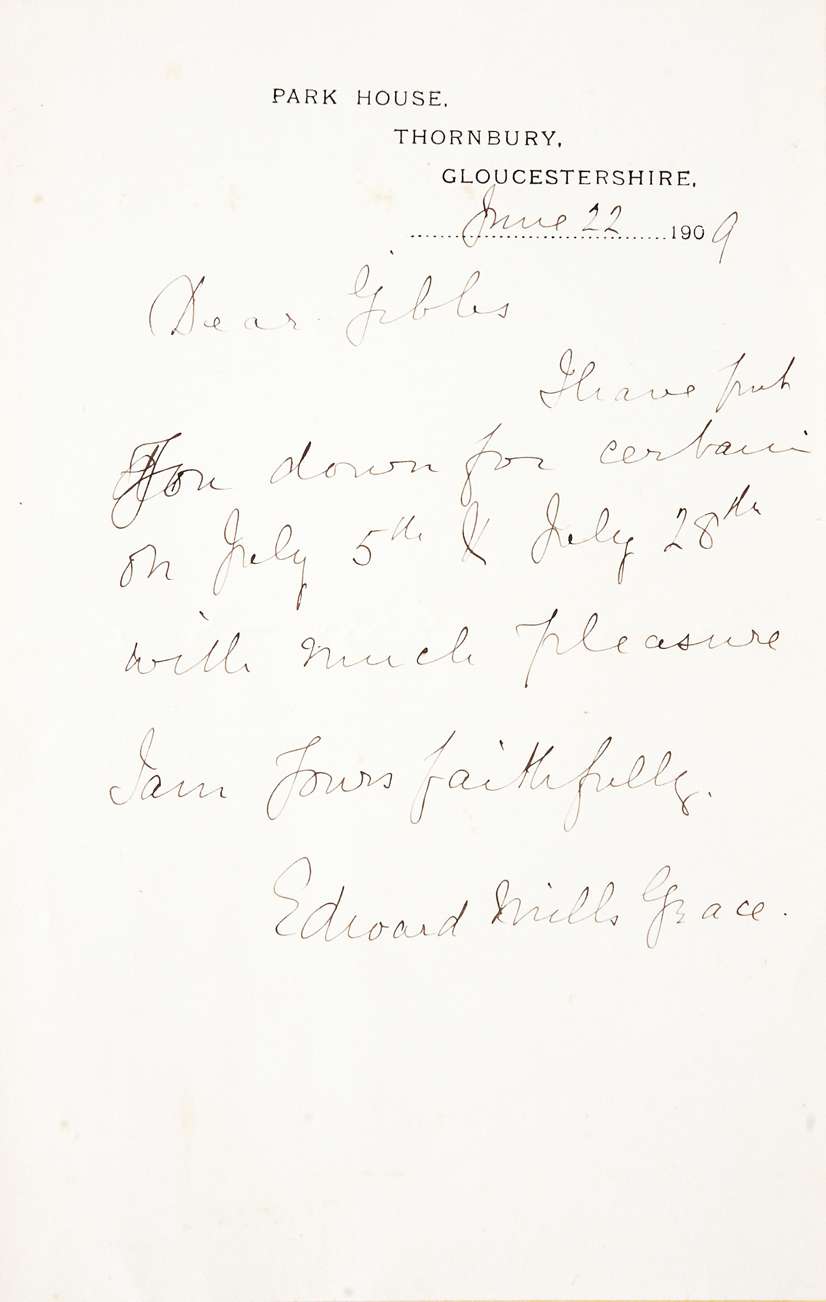 PARK HOUSE,
THORNBURY,
GLOUCESTERSHIRE,
June 22 1909
Dear Gibbs
I have put
You down for certain
on July 5th & July 28th
with much pleasure
I am Yours faithfully.
Edward Mills Grace.